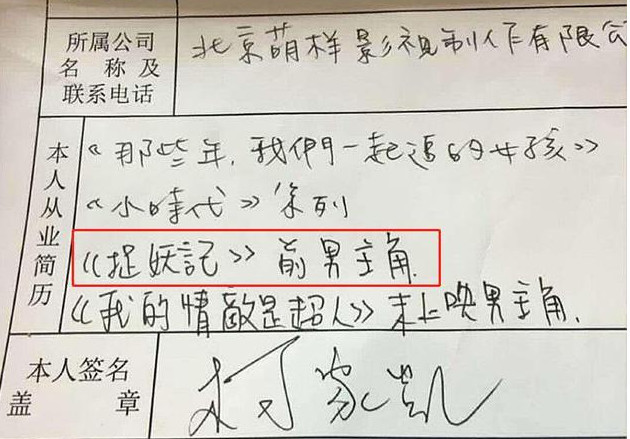 所属公司
名 称 及
联系电话
北京萌样影视制作有限公
本人从业简历
《那些年,我們一起追的女孩》
《小時代》系列
《捉妖記》前男主角.
《我的情敵是超人》未上映男主角.
本人签名
盖 章
柯家凯